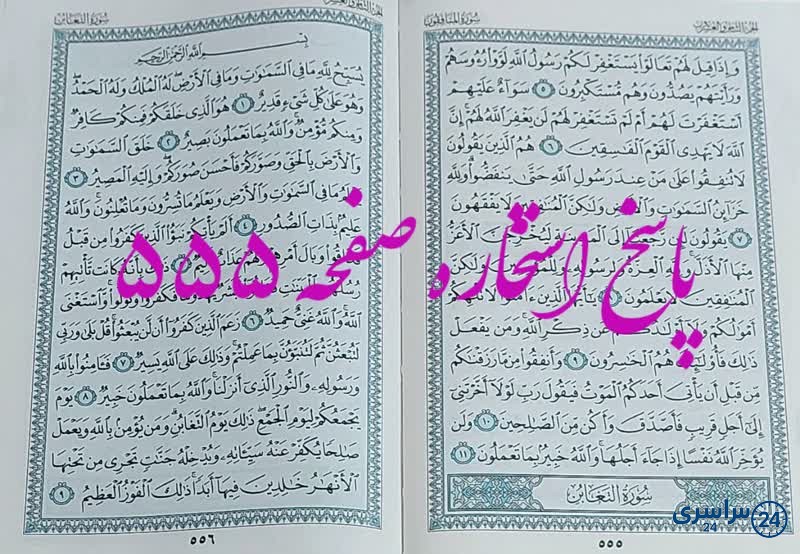 سُورَةُ المُنَافِقُون
وَإِذَا قِيلَ لَهُمْ تَعَالَوْا يَسْتَغْفِرْ لَكُمْ رَسُولُ اللَّهِ لَوَّوْا رُءُوسَهُمْ
وَرَأَيْتَهُمْ يَصُدُّونَ وَهُم مُّسْتَكْبِرُونَ ٥ سَوَاءٌ عَلَيْهِمْ
أَسْتَغْفَرْتَ لَهُمْ أَمْ لَمْ تَسْتَغْفِرْ لَهُمْ لَن يَغْفِرَ اللَّهُ لَهُمْ إِنَّ
اللَّهَ لَا يَهْدِي الْقَوْمَ الْفَاسِقِينَ ٦ هُمُ الَّذِينَ يَقُولُونَ
لَا تُنفِقُوا عَلَىٰ مَنْ عِندَ رَسُولِ اللَّهِ حَتَّىٰ يَنفَضُّوا وَلِلَّهِ
خَزَائِنُ السَّمَٰوَٰتِ وَالْأَرْضِ وَلَٰكِنَّ الْمُنَافِقِينَ لَا يَفْقَهُونَ
٧ يَقُولُونَ لَئِن رَّجَعْنَا إِلَى الْمَدِينَةِ لَيُخْرِجَنَّ الْأَعَزُّ
مِنْهَا الْأَذَلَّ وَلِلَّهِ الْعِزَّةُ وَلِرَسُولِهِ وَلِلْمُؤْمِنِينَ وَلَٰكِنَّ
الْمُنَافِقِينَ لَا يَعْلَمُونَ ٨ يَٰأَيُّهَا الَّذِينَ ءَامَنُوا لَا تُلْهِكُمْ
أَمْوَالُكُمْ وَلَا أَوْلَادُكُمْ عَن ذِكْرِ اللَّهِ وَمَن يَفْعَلْ
ذَٰلِكَ فَأُولَٰئِكَ هُمُ الْخَاسِرُونَ ٩ وَأَنفِقُوا مِن مَّا رَزَقْنَاكُم
مِّن قَبْلِ أَن يَأْتِيَ أَحَدَكُمُ الْمَوْتُ فَيَقُولَ رَبِّ لَوْلَا أَخَّرْتَنِي
إِلَىٰ أَجَلٍ قَرِيبٍ فَأَصَّدَّقَ وَأَكُن مِّنَ الصَّالِحِينَ ١٠ وَلَن
يُؤَخِّرَ اللَّهُ نَفْسًا إِذَا جَاءَ أَجَلُهَا وَاللَّهُ خَبِيرٌ بِمَا تَعْمَلُونَ ١١
سُورَةُ التَّغَابُن
٥٥٥
سُورَةُ التَّغَابُن
بِسْمِ اللَّهِ الرَّحْمَٰنِ الرَّحِيمِ
يُسَبِّحُ لِلَّهِ مَا فِي السَّمَٰوَٰتِ وَمَا فِي الْأَرْضِ لَهُ الْمُلْكُ وَلَهُ الْحَمْدُ
وَهُوَ عَلَىٰ كُلِّ شَيْءٍ قَدِيرٌ ١ هُوَ الَّذِي خَلَقَكُمْ فَمِنكُمْ كَافِرٌ
وَمِنكُم مُّؤْمِنٌ وَاللَّهُ بِمَا تَعْمَلُونَ بَصِيرٌ ٢ خَلَقَ السَّمَٰوَٰتِ
وَالْأَرْضَ بِالْحَقِّ وَصَوَّرَكُمْ فَأَحْسَنَ صُوَرَكُمْ وَإِلَيْهِ الْمَصِيرُ ٣
يَعْلَمُ مَا فِي السَّمَٰوَٰتِ وَالْأَرْضِ وَيَعْلَمُ مَا تُسِرُّونَ وَمَا تُعْلِنُونَ وَاللَّهُ
عَلِيمٌ بِذَاتِ الصُّدُورِ ٤ أَلَمْ يَأْتِكُمْ نَبَؤُا الَّذِينَ كَفَرُوا مِن قَبْلُ
فَذَاقُوا وَبَالَ أَمْرِهِمْ وَلَهُمْ عَذَابٌ أَلِيمٌ ٥ ذَٰلِكَ بِأَنَّهُ كَانَت تَّأْتِيهِمْ
رُسُلُهُم بِالْبَيِّنَٰتِ فَقَالُوا أَبَشَرٌ يَهْدُونَنَا فَكَفَرُوا وَتَوَلَّوا وَّاسْتَغْنَى
اللَّهُ وَاللَّهُ غَنِيٌّ حَمِيدٌ ٦ زَعَمَ الَّذِينَ كَفَرُوا أَن لَّن يُبْعَثُوا قُلْ بَلَىٰ وَرَبِّي
لَتُبْعَثُنَّ ثُمَّ لَتُنَبَّؤُنَّ بِمَا عَمِلْتُمْ وَذَٰلِكَ عَلَى اللَّهِ يَسِيرٌ ٧ فَـَٔامِنُوا بِاللَّهِ
وَرَسُولِهِ وَالنُّورِ الَّذِي أَنزَلْنَا وَاللَّهُ بِمَا تَعْمَلُونَ خَبِيرٌ ٨ يَوْمَ
يَجْمَعُكُمْ لِيَوْمِ الْجَمْعِ ذَٰلِكَ يَوْمُ التَّغَابُنِ وَمَن يُؤْمِن بِاللَّهِ وَيَعْمَلْ
صَالِحًا يُكَفِّرْ عَنْهُ سَيِّئَاتِهِ وَيُدْخِلْهُ جَنَّٰتٍ تَجْرِي مِن تَحْتِهَا
الْأَنْهَارُ خَالِدِينَ فِيهَا أَبَدًا ذَٰلِكَ الْفَوْزُ الْعَظِيمُ ٩
٥٥٦
پاسخ استخاره صفحه ۵۵۵
سراسری 24
24